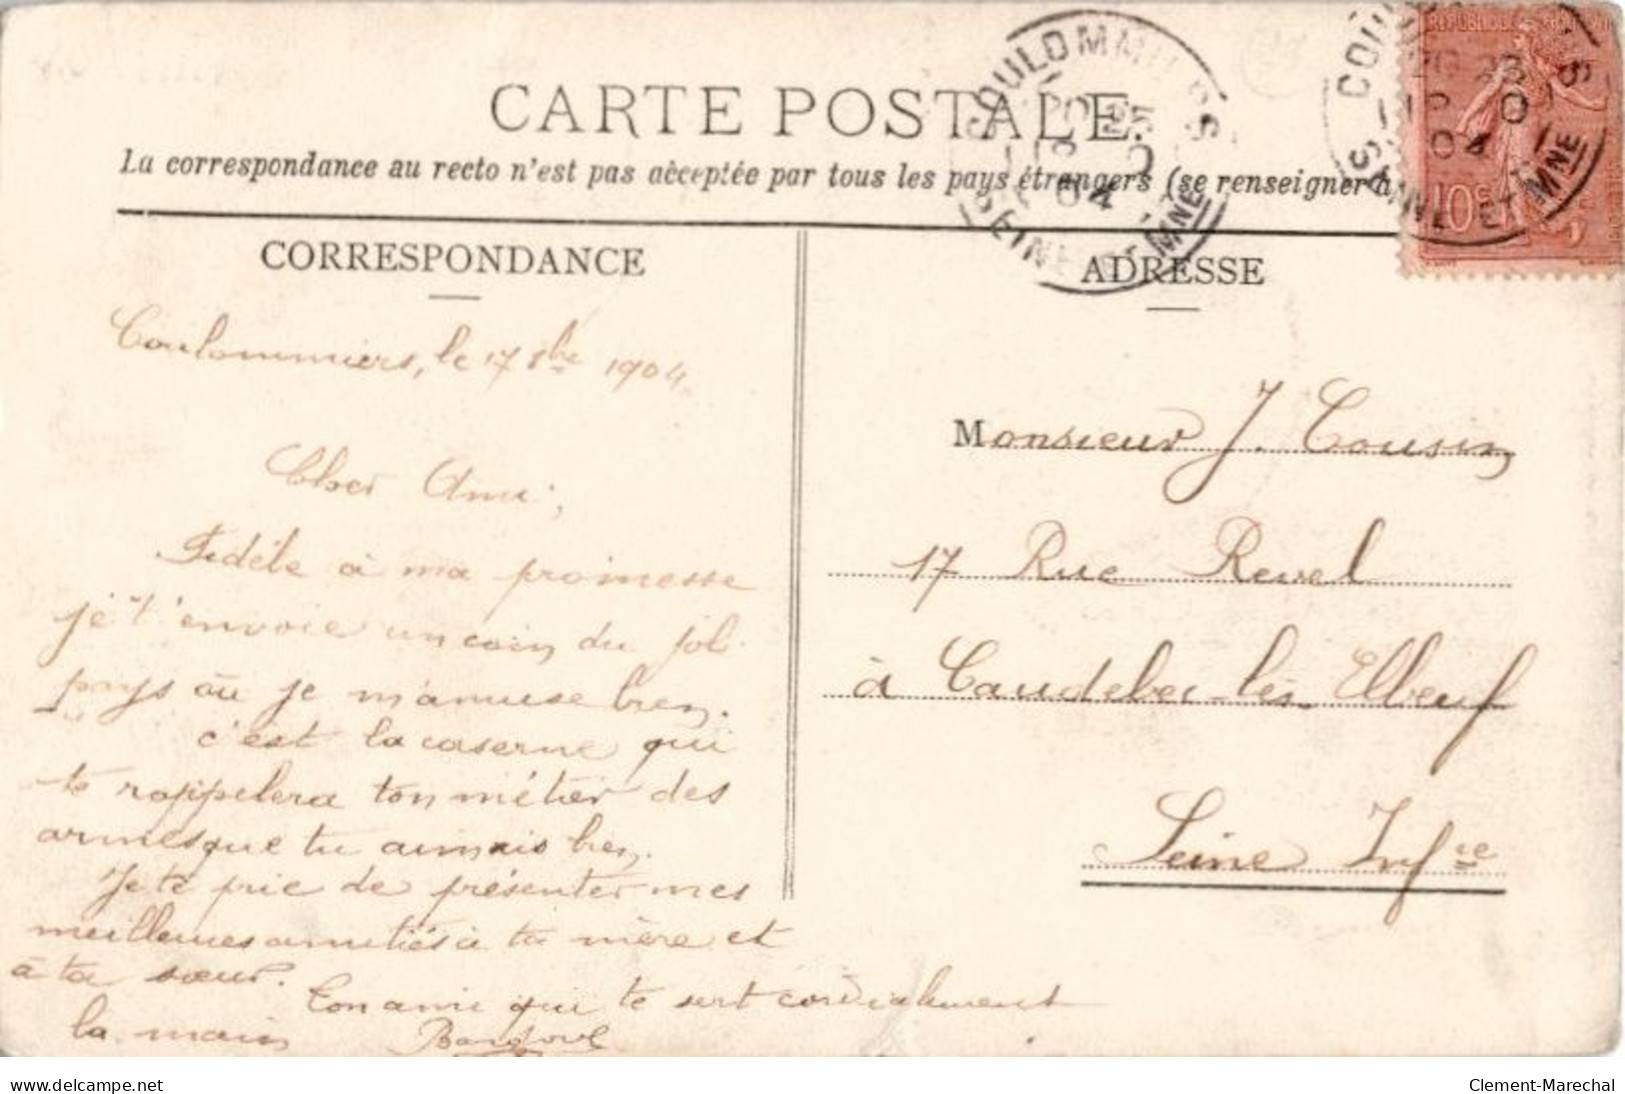 CARTE POSTALE
La correspondance au recto n'est pas acceptée par tous les pays étrangers (se renseigner à
CORRESPONDANCE
Coulommiers, le 17 8bre 1904
Cher Ami,
Fidèle à ma promesse
je t'envoie un coin du joli
pays où je m'amuse bien.
c'est la caserne qui
te rappelera ton métier des
armes que tu aimais bien.
Je te prie de présenter mes
meilleures amitiés à ta mère et
à ta sœur.
Ton ami qui te sert cordialement
la main
ADRESSE
Monsieur J. Cousin
17 Rue Revel
à Caudebec-lès-Elbeuf
Seine Infre
COULOMMIERS
SEINE ET MNE
04
REPUBLIQUE FRANÇAISE
10c
COU S
SEINE ET MNE
04
delcampe.net
Clement-Marechal